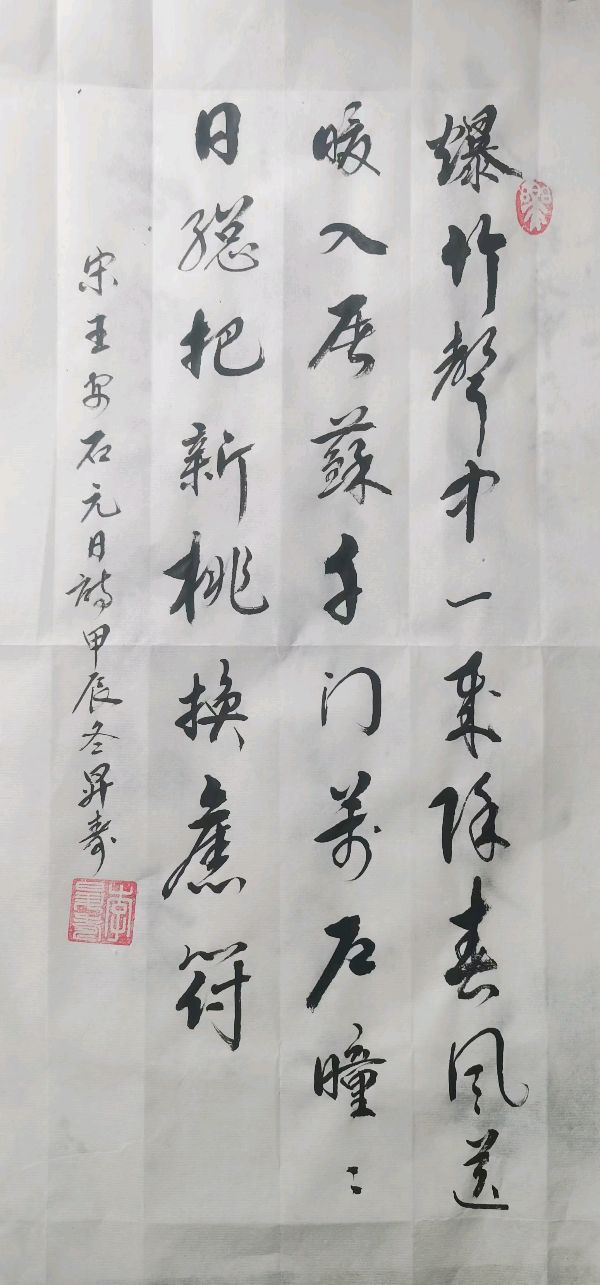 爆竹聲中一歲除春風送
暖入屠蘇千門萬户曈〻
日總把新桃換舊符
宋王安石元日詩甲辰冬昇壽